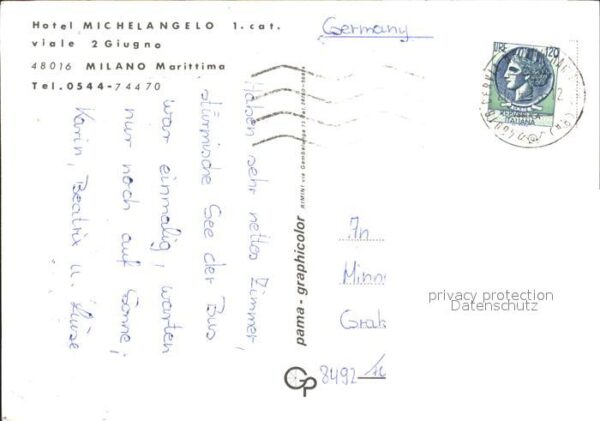 Hotel MICHELANGELO 1. cat.
viale 2 Giugno
48016 MILANO Marittima
Tel. 0544-74470
Germany
LIRE 120
ITALIANA
Haben sehr nettes Zimmer,
stürmische See der Bus
war einmalig, warten
nur noch auf Sonne,
Karin, Beatrix u. Luise
pama - graphicolor
RIMINI via Gambalunga
GP
An
Minn
Grab
8492
privacy protection
Datenschutz